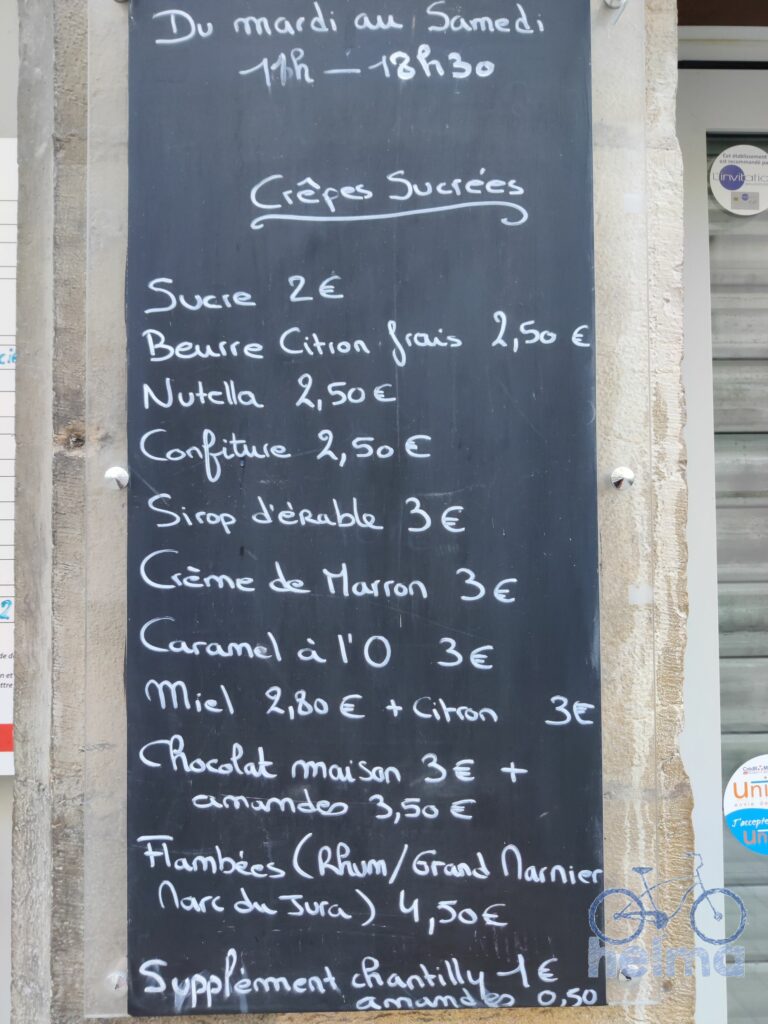 Du mardi au Samedi
11h - 18h30
Crêpes Sucrées
Sucre 2€
Beurre Citron frais 2,50€
Nutella 2,50€
Confiture 2,50€
Sirop d'érable 3€
Crème de Marron 3€
Caramel à l'O 3€
Miel 2,80€ + Citron 3€
Chocolat maison 3€ +
amandes 3,50€
Flambées (Rhum/Grand Marnier
Marc du Jura) 4,50€
Supplément chantilly 1€
amandes 0,50
Cet établissement
est recommandé pa
helma
J'accepte